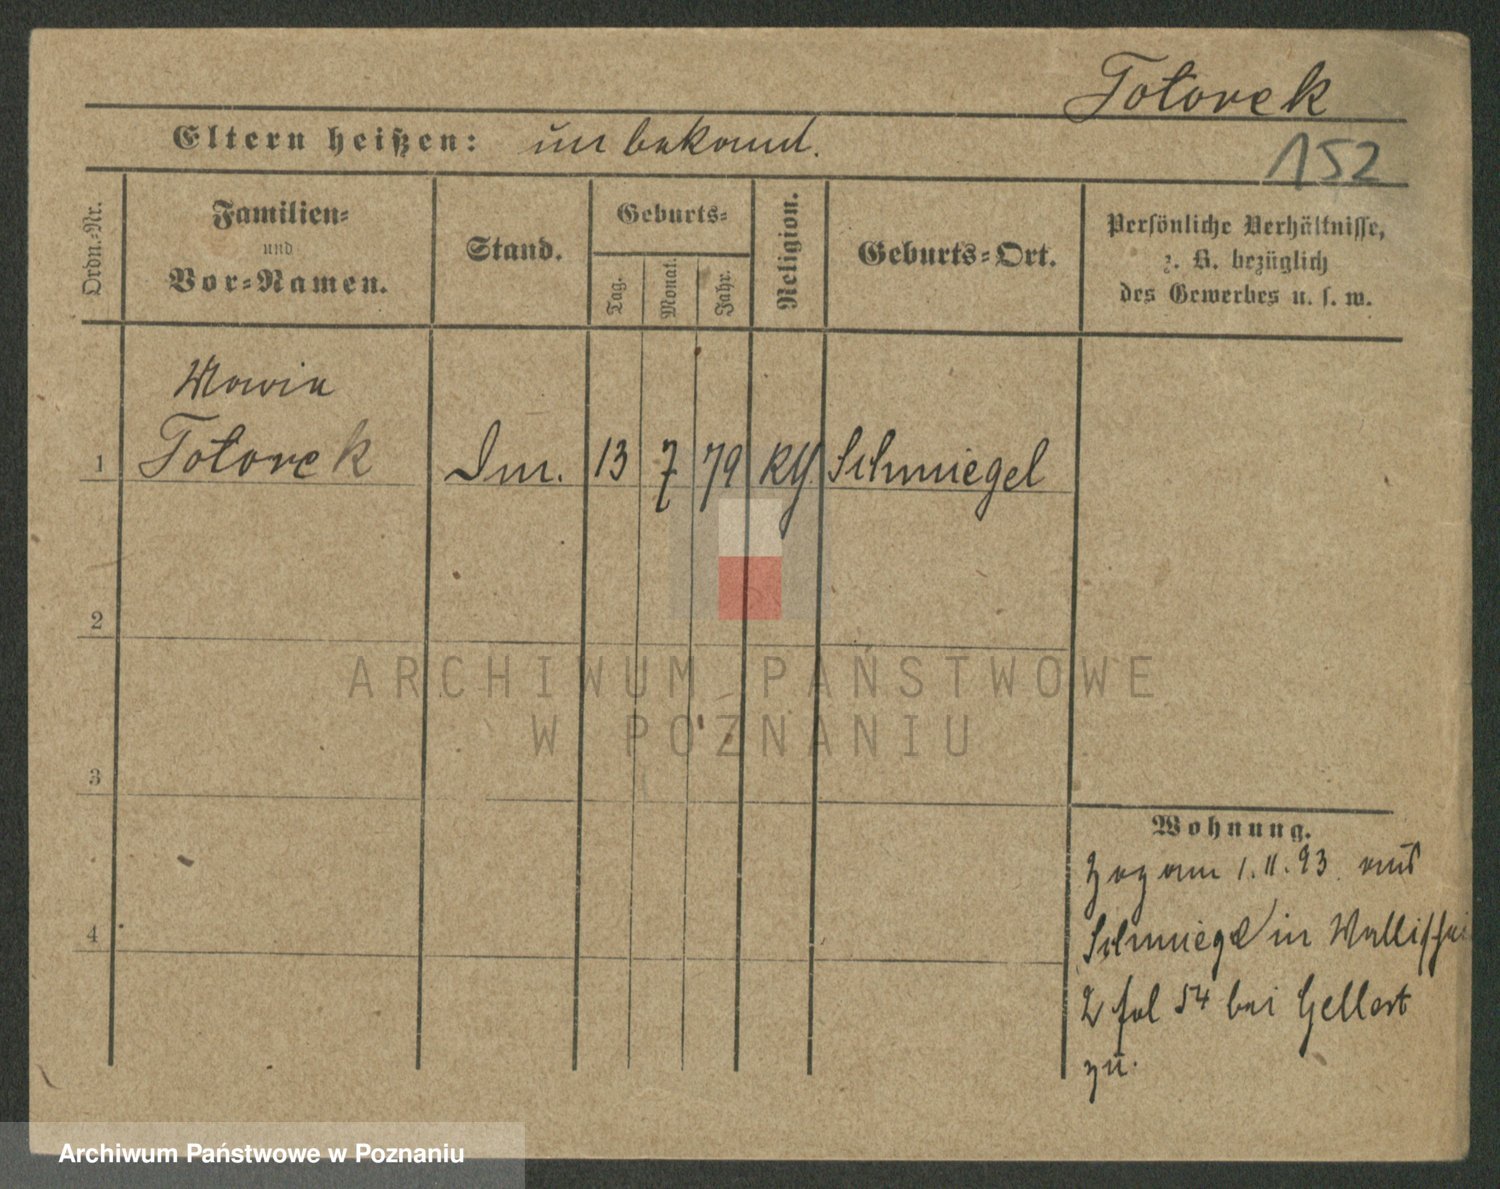 Totorek
Eltern heißen: unbekannt.
152
Ordn.-Nr.
Familien-
und
Vor-Namen.
Stand.
Geburts-
Tag.
Monat.
Jahr.
Religion.
Geburts-Ort.
Persönliche Verhältnisse,
z. B. bezüglich
des Gewerbes u. s. w.
Maria
1 Totorek 13 7 79 Schmiegel
2
ARCHIWUM PAŃSTWOWE
W POZNANIU
3
Wohnung.
Zog am 1.11.93 aus
4
Schmiegel in Wallischei
2 fol 54 bei Gellert
zu.
Archiwum Państwowe w Poznaniu